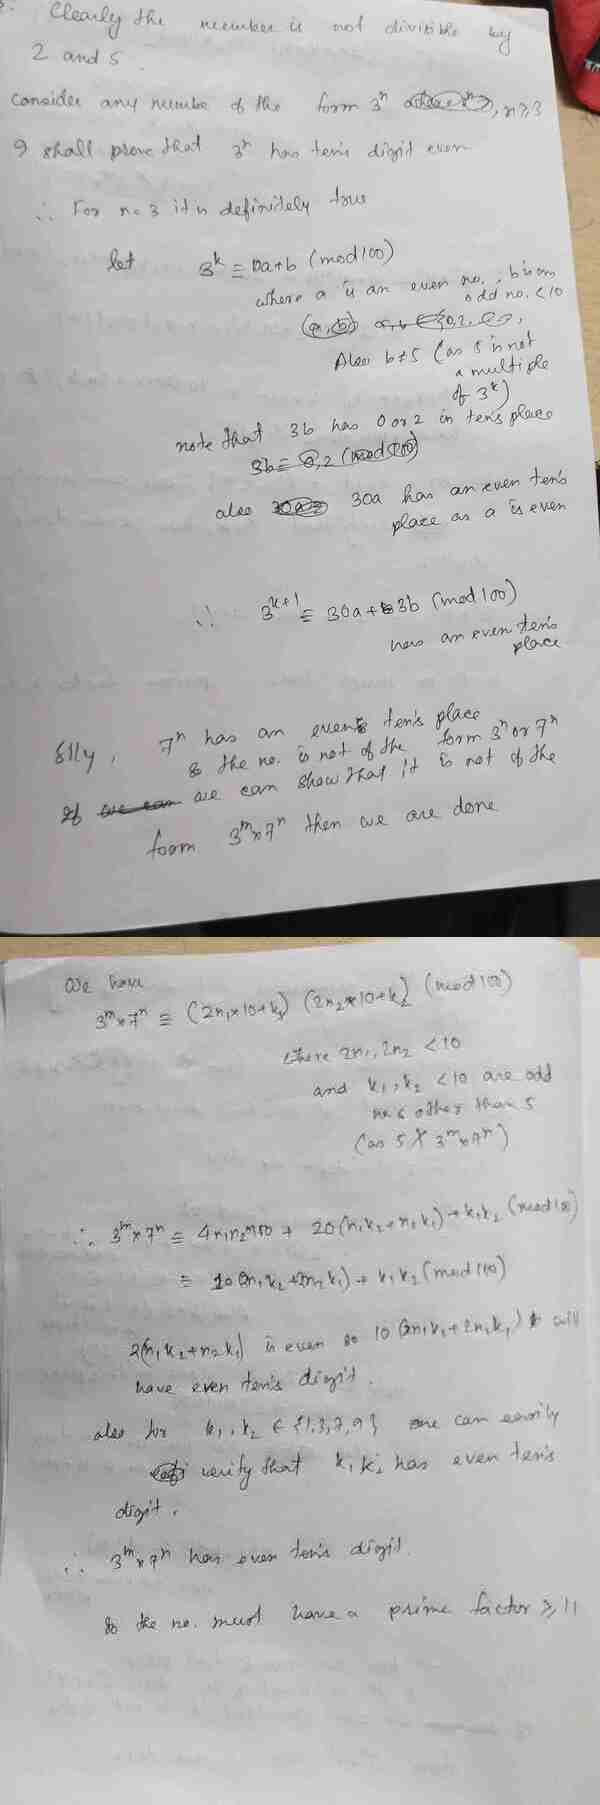 Clearly the number is not divisible by
2 and 5.
Consider any number of the form 3^n , n ≥ 3
I shall prove that 3^n has ten's digit even
∴ For n=3 it is definitely true
let 3^k ≡ 10a+b (mod 100)
where a is an even no., b is an
odd no. < 10
Also b≠5 (as 5 is not
a multiple
of 3^k)
note that 3b has 0 or 2 in ten's place
3b ≡ 0,2 (mod 100)
also 30a has an even ten's
place as a is even
∴ 3^{k+1} ≡ 30a + 3b (mod 100)
has an even ten's
place
Slly, 7^n has an even ten's place
& the no. is not of the form 3^n or 7^n
If we can we can show that it is not of the
form 3^m × 7^n then we are done
We have
3^m × 7^n ≡ (2n₁×10+k₁) (2n₂×10+k₂) (mod 100)
where 2n₁, 2n₂ < 10
and k₁, k₂ < 10 are odd
no.s other than 5
(as 5 ∤ 3^m × 7^n)
∴ 3^m × 7^n ≡ 4n₁n₂×100 + 20(n₁k₂+n₂k₁) + k₁k₂ (mod 100)
≡ 10(2n₁k₂+2n₂k₁) + k₁k₂ (mod 100)
2(n₁k₂+n₂k₁) is even so 10(2n₁k₂+2n₂k₁) will
have even ten's digit.
also for k₁, k₂ ∈ {1,3,7,9} one can easily
verify that k₁k₂ has even ten's
digit.
∴ 3^m × 7^n has even ten's digit.
So the no. must have a prime factor ≥ 11